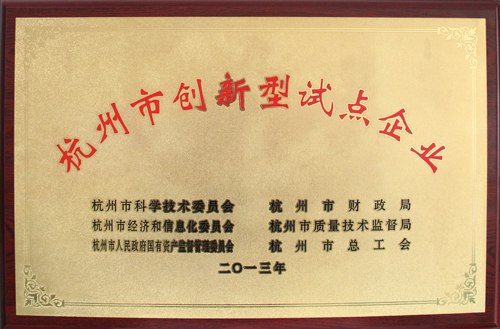 杭州市创新型试点企业
杭州市科学技术委员会 杭州市财政局
杭州市经济和信息化委员会 杭州市质量技术监督局
杭州市人民政府国有资产监督管理委员会 杭州市总工会
二〇一三年